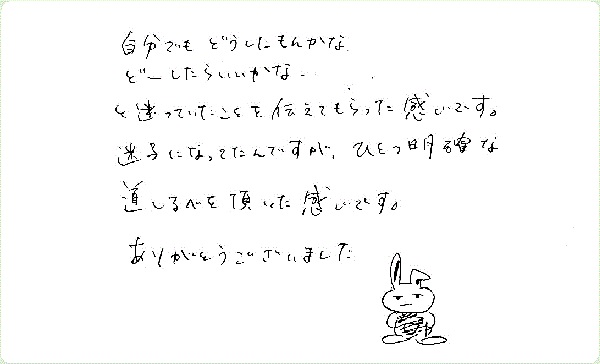 自分でも どうしたもんかな
どーしたらいいかな…
と迷っていたことを伝えてもらった感じです。
迷子になってたんですが、ひとつ明確な
道しるべを頂いた感じです。
ありがとうございました